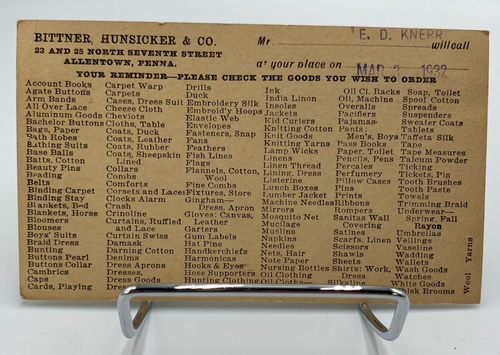 BITTNER, HUNSICKER & CO.
23 AND 25 NORTH SEVENTH STREET
ALLENTOWN, PENNA.
Mr. E. D. KNERR will call
at your place on MAR 2 1932
YOUR REMINDER—PLEASE CHECK THE GOODS YOU WISH TO ORDER
Account Books
Agate Buttons
Arm Bands
All Over Lace
Aluminum Goods
Bachelor Buttons
Bags, Paper
Bath Robes
Bathing Suits
Base Balls
Batts, Cotton
Beauty Pins
Beading
Belts
Binding Carpet
Binding Stay
Blankets, Bed
Blankets, Horse
Bloomers
Blouses
Boys' Suits
Braid Dress
Bunting
Buttons Pearl
Buttons Collar
Cambrics
Caps
Cards, Playing
Carpet Warp
Carpets
Cases, Dress Suit
Cheese Cloth
Cheviots
Cloths, Table
Coats, Duck
Coats, Leather
Coats, Rubber
Coats, Sheepskin
Lined
Collars
Combs
Comforts
Corsets and Laces
Clocks Alarm
Crash
Crinoline
Curtains, Ruffled
and Lace
Curtain Swiss
Damask
Darning Cotton
Denims
Dress Aprons
Dresses,
Dresses,
Drills
Duck
Embroidery Silk
Embroid'y Hoops
Elastic Web
Envelopes
Fasteners, Snap
Fans
Feathers
Fish Lines
Flags
Flannels, Cotton,
Wool
Fine Combs
Fixtures, Store
Gingham—
Dress, Apron
Gloves: Canvas,
Leather
Garters
Gum Labels
Hat Pins
Handkerchiefs
Harmonicas
Hooks & Eyes
Hose Supporters
Hosiery
Ink
India Linon
Insoles
Jackets
Kid Curlers
Knitting Cotton
Knit Goods
Knitting Yarns
Lamp Wicks
Linens
Linen Thread
Lining, Dress
Listerine
Lunch Boxes
Lumber Jacks
Machine Needles
Mirrors
Mosquito Net
Mucilage
Muslins
Napkins
Needles
Nets, Hair
Note Paper
Nursing Bottles
Oil Clothing
Oil Cloth
Oil Cl. Racks
Oil, Machine
Overalls
Pacifiers
Pajamas
Pants:
Men's, Boys
Pass Books
Paper, Toilet
Pencils, Pens
Percales
Perfumery
Pillow Cases
Pins
Prints
Ribbons
Rompers
Sanitas Wall
Covering
Satines
Scarfs, Linen
Scissors
Shawls
Sheets
Shirts: Work,
Dress
Silkaline
Soap, Toilet
Spool Cotton
Spreads
Suspenders
Sweater Coats
Tablets
Taffeta Silk
Tape
Tape Measures
Talcum Powder
Ticking
Tickets, Pin
Tooth Brushes
Tooth Paste
Towels
Trimming Braid
Underwear—
Spring, Fall
Rayon
Umbrellas
Veilings
Vaseline
Wadding
Wallets
Wash Goods
Watches
White Goods
Whisk Brooms
Wool Yarns